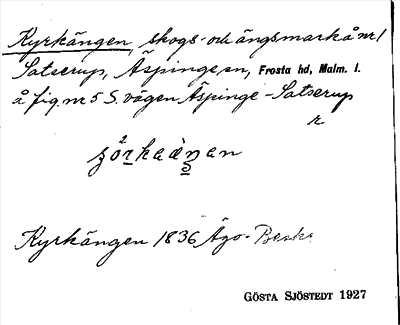 Kyrkängen, skogs- och ängsmark å nr 1
Satserup, Äspinge sn, Frosta hd, Malm. l.
å fig. nr 5 S. vägen Äspinge - Satserup
Kyrkängen 1836 Ägo-Beskr.
GÖSTA SJÖSTEDT 1927